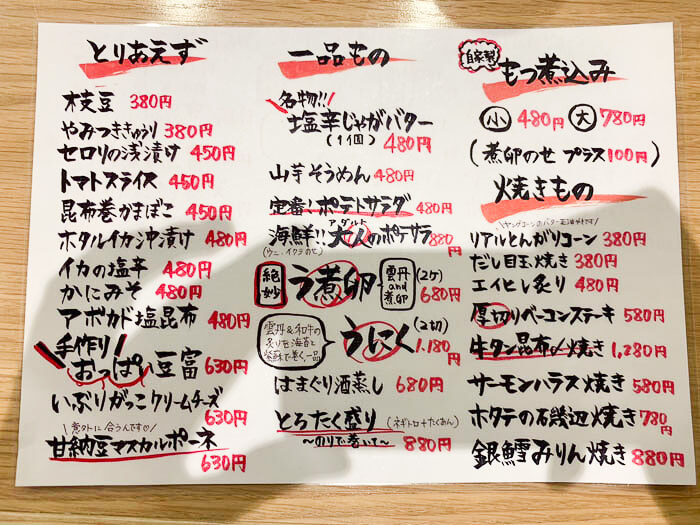 とりあえず
枝豆 380円
やみつききゅうり 380円
セロリの浅漬け 450円
トマトスライス 450円
昆布巻かまぼこ 450円
ホタルイカ沖漬け 480円
イカの塩辛 480円
かにみそ 480円
アボカド塩昆布 480円
手作り
おっぱい豆富 630円
いぶりがっこクリームチーズ
630円
意外に合うんです
甘納豆マスカルポーネ
630円
一品もの
名物!!
塩辛じゃがバター
(1個) 480円
山芋そうめん 480円
定番!ポテトサラダ 480円
アダルト
海鮮!!大人のポテサラ 880円
(ウニ、イクラのせ)
絶妙 う煮卵 雲丹and煮卵 (2ケ)
680円
雲丹&和牛の
炙りを海苔と
紫蘇で巻く一品
うにく (2切)
1,180円
はまぐり酒蒸し 680円
とろたく盛り (ネギトロ+たくあん)
〜のりで巻いて〜 880円
自家製 もつ煮込み
小 480円 大 780円
(煮卵のせ プラス100円)
焼きもの
ヤングコーンのバター醤油焼きです
リアルとんがりコーン 380円
だし目玉焼き 380円
エイヒレ炙り 480円
厚切りベーコンステーキ 580円
牛タン昆布〆焼き 1,280円
サーモンハラス焼き 580円
ホタテの石磯辺焼き 780円
銀鱈みりん焼き 880円